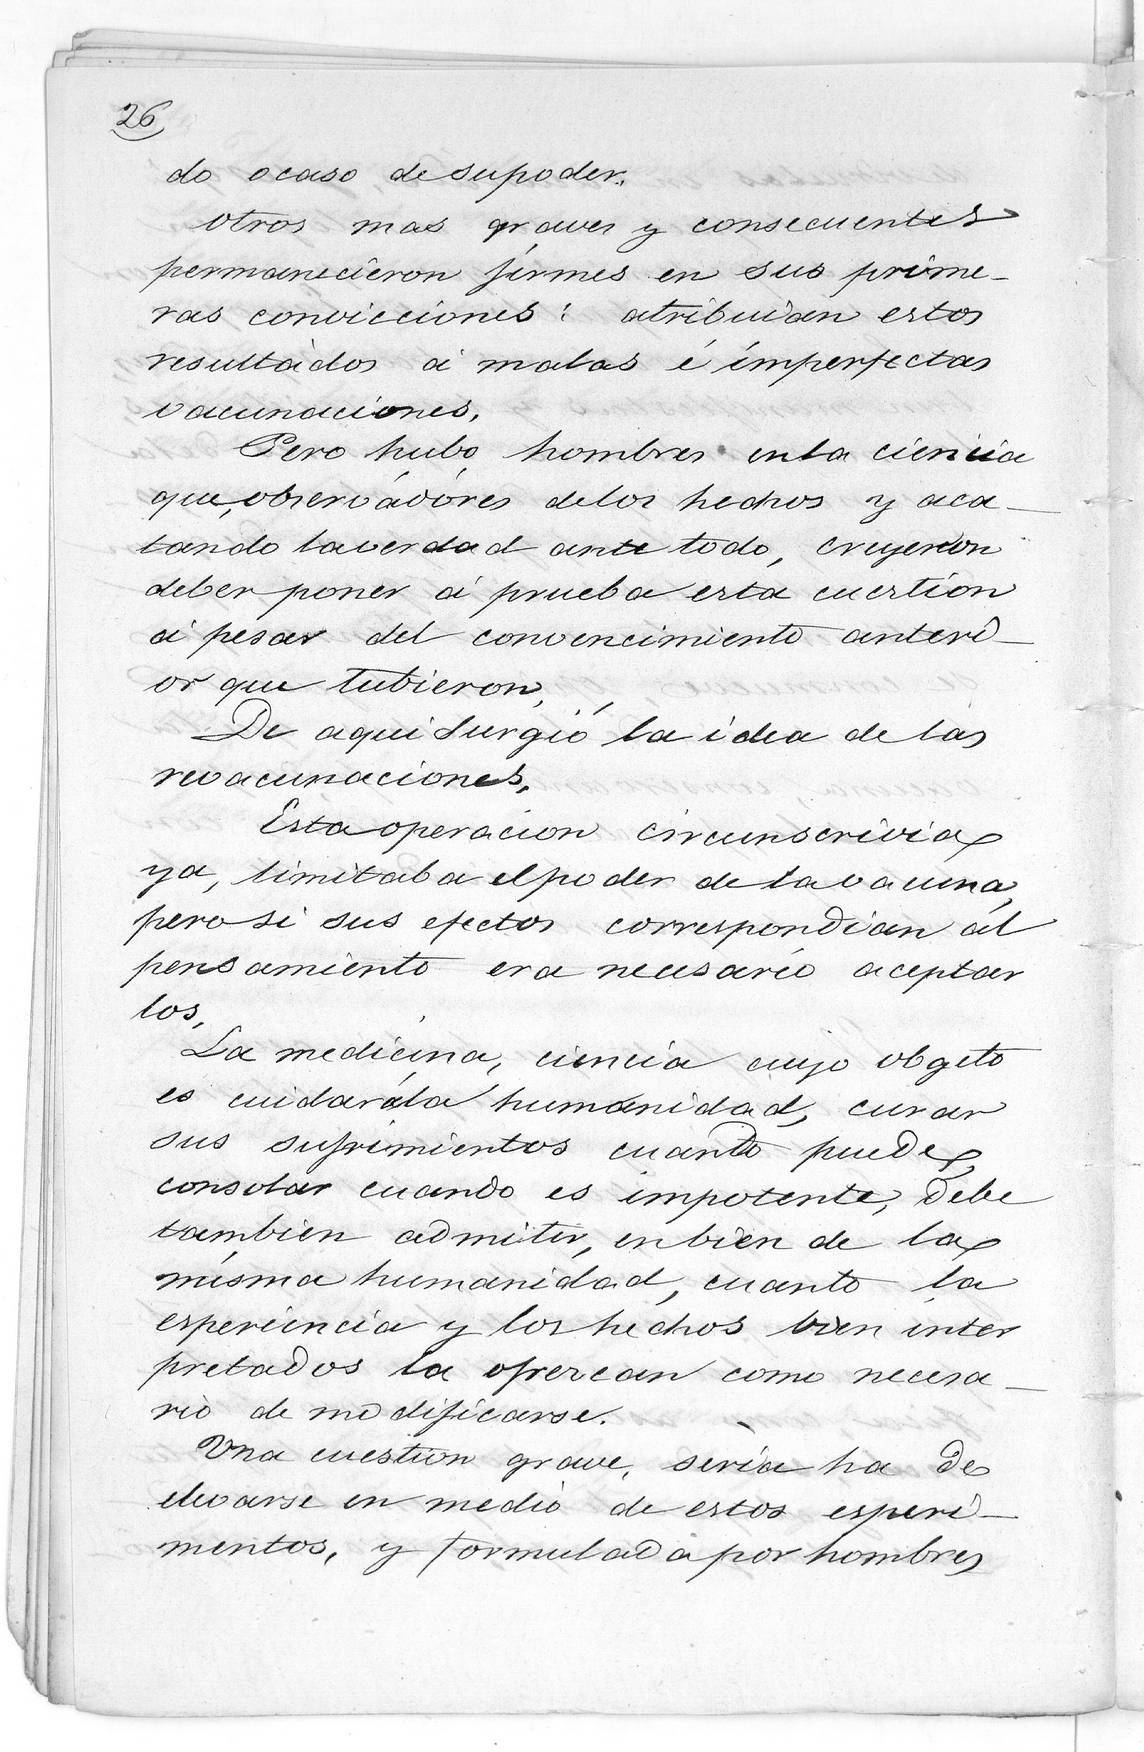 26
do ocaso de su poder.
Otros mas graves y consecuentes
permanecieron firmes en sus prime-
ras convicciones: atribuian estos
resultados á malas é imperfectas
vacunaciones.
Pero hubo hombres en la ciencia
que, observadóres de los hechos y aca-
tando la verdad ante todo, creyeron
deber poner á prueba esta cuestion
á pesar del convencimiento anteri-
or que tubieron.
De aqui surgió la idea de las
revacunaciones.
Esta operacion circunscrivia
ya, limitaba el poder de la vacuna,
pero si sus efectos correspondian al
pensamiento era necesario aceptar
los.
La medicina, ciencia cuyo obgeto
es cuidar á la humanidad, curar
sus sufrimientos cuanto puede,
consolar cuando es impotente, debe
tambien admitir, en bien de la
misma humanidad, cuanto la
esperiencia y los hechos bien inter
pretados la ofrezcan como necesa-
rio de modificarse.
Una cuestion grave, séria ha de
elevarse en medio de estos esperi-
mentos, y formulada por hombres